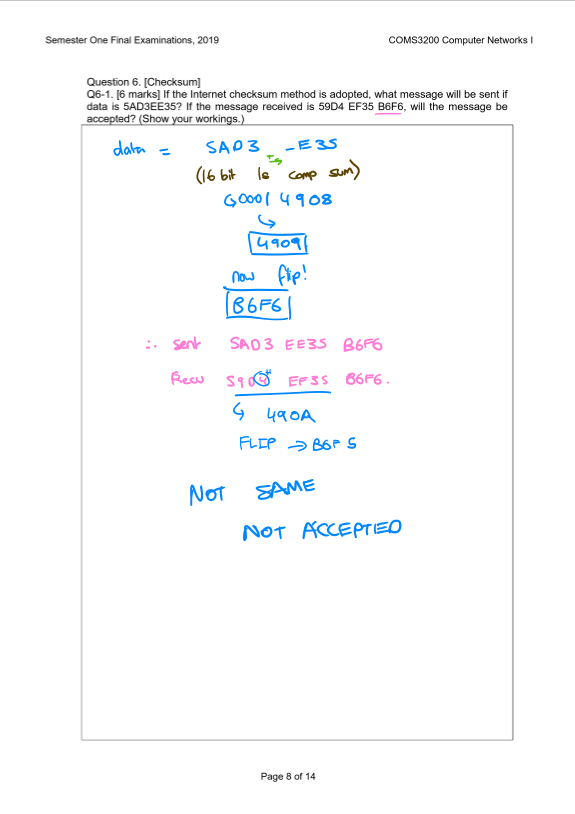 Semester One Final Examinations, 2019 COMS3200 Computer Networks I
Question 6. [Checksum]
Q6-1. [6 marks] If the Internet checksum method is adopted, what message will be sent if
data is 5AD3EE35? If the message received is 59D4 EF35 B6F6, will the message be
accepted? (Show your workings.)
data = 5AD3 -E35
(16 bit 1s comp sum)
0001 4908
4909
now flip!
B6F6
∴ sent 5AD3 EE35 B6F6
Recv 59D4 EF35 B6F6.
490A
FLIP → B6F5
NOT SAME
NOT ACCEPTED
Page 8 of 14